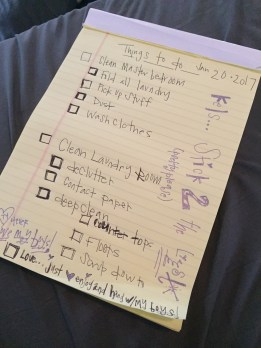 Things to do Jan 20·2017
Clean Master bedroom
Fold all laundry
Pick up stuff
Dust
Wash clothes
Clean Laundry Room
declutter
Contact paper
deep clean
counter tops
Floors
Scrub down
Love... Just enjoy and have w/my boys!
Kels... Stick 2 the